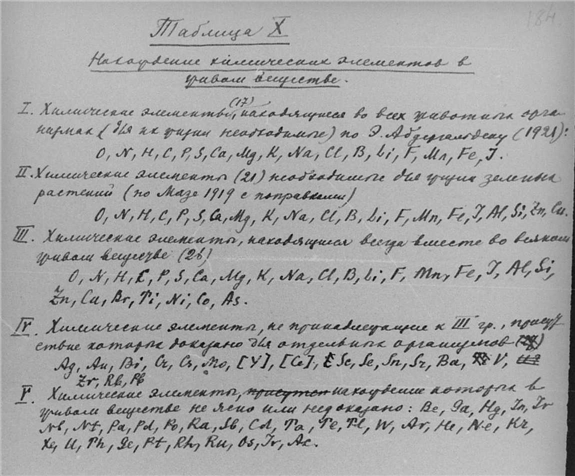 184
Таблица X
Нахождение химических элементов в
живом веществе.
I. Химические элементы (17), находящиеся во всех животных орга-
низмах (для их жизни необходимые) по Э. Абдергальдену (1921):
O, N, H, C, P, S, Ca, Mg, K, Na, Cl, B, Li, F, Mn, Fe, J.
II. Химические элементы (21) необходимые для жизни зеленых
растений (по Мазе 1919 с поправками)
O, N, H, C, P, S, Ca, Mg, K, Na, Cl, B, Li, F, Mn, Fe, J, Al, Si, Zn, Cu.
III. Химические элементы, находящиеся всегда вместе во всяком
живом веществе (26)
O, N, H, C, P, S, Ca, Mg, K, Na, Cl, B, Li, F, Mn, Fe, J, Al, Si,
Zn, Cu, Br, Ti, Ni, Co, As.
IV. Химические элементы, не принадлежащие к III гр., присут
ствие которых доказано для отдельных организмов
Ag, Au, Bi, Cr, Cs, Mo, [Y], [Ce], Se, Sn, Sr, Ba, V,
Zr, Rb, Pb
V. Химические элементы, нахождение которых в
живом веществе не ясно или недоказано: Be, Ga, Hg, In, Ir
Nb, Nt, Pa, Pd, Po, Ra, Sb, Cd, Ta, Te, Tl, W, Ar, He, Ne, Kr,
Xe, U, Th, Ge, Pt, Rh, Ru, Os, Ir, Ac.